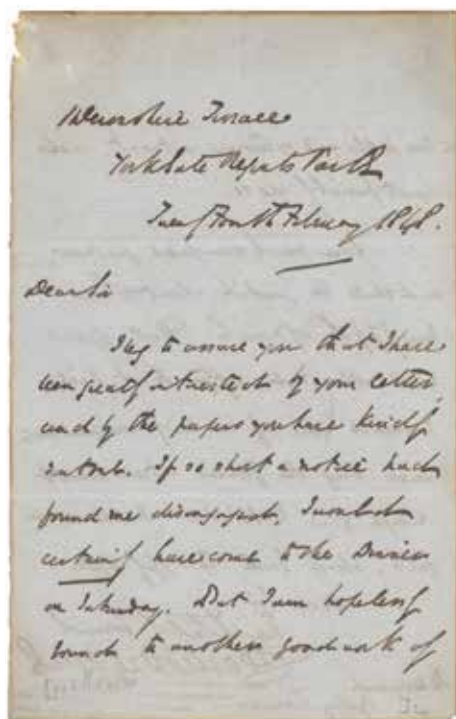 1 Devonshire Terrace
York Gate Regents Park
Tenth February 1848.
Dear Sir
I beg to assure you that I have
been greatly interested by your letter,
and by the papers you have kindly
sent me. If so short a notice had
found me disengaged, I would
certainly have come to the Dinner
on Saturday. But I am hopelessly
bound to another good work of